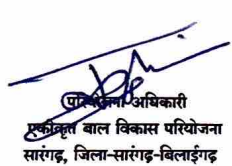 परियोजना अधिकारी
एकीकृत बाल विकास परियोजना
सारंगढ़, जिला-सारंगढ़-बिलाईगढ़